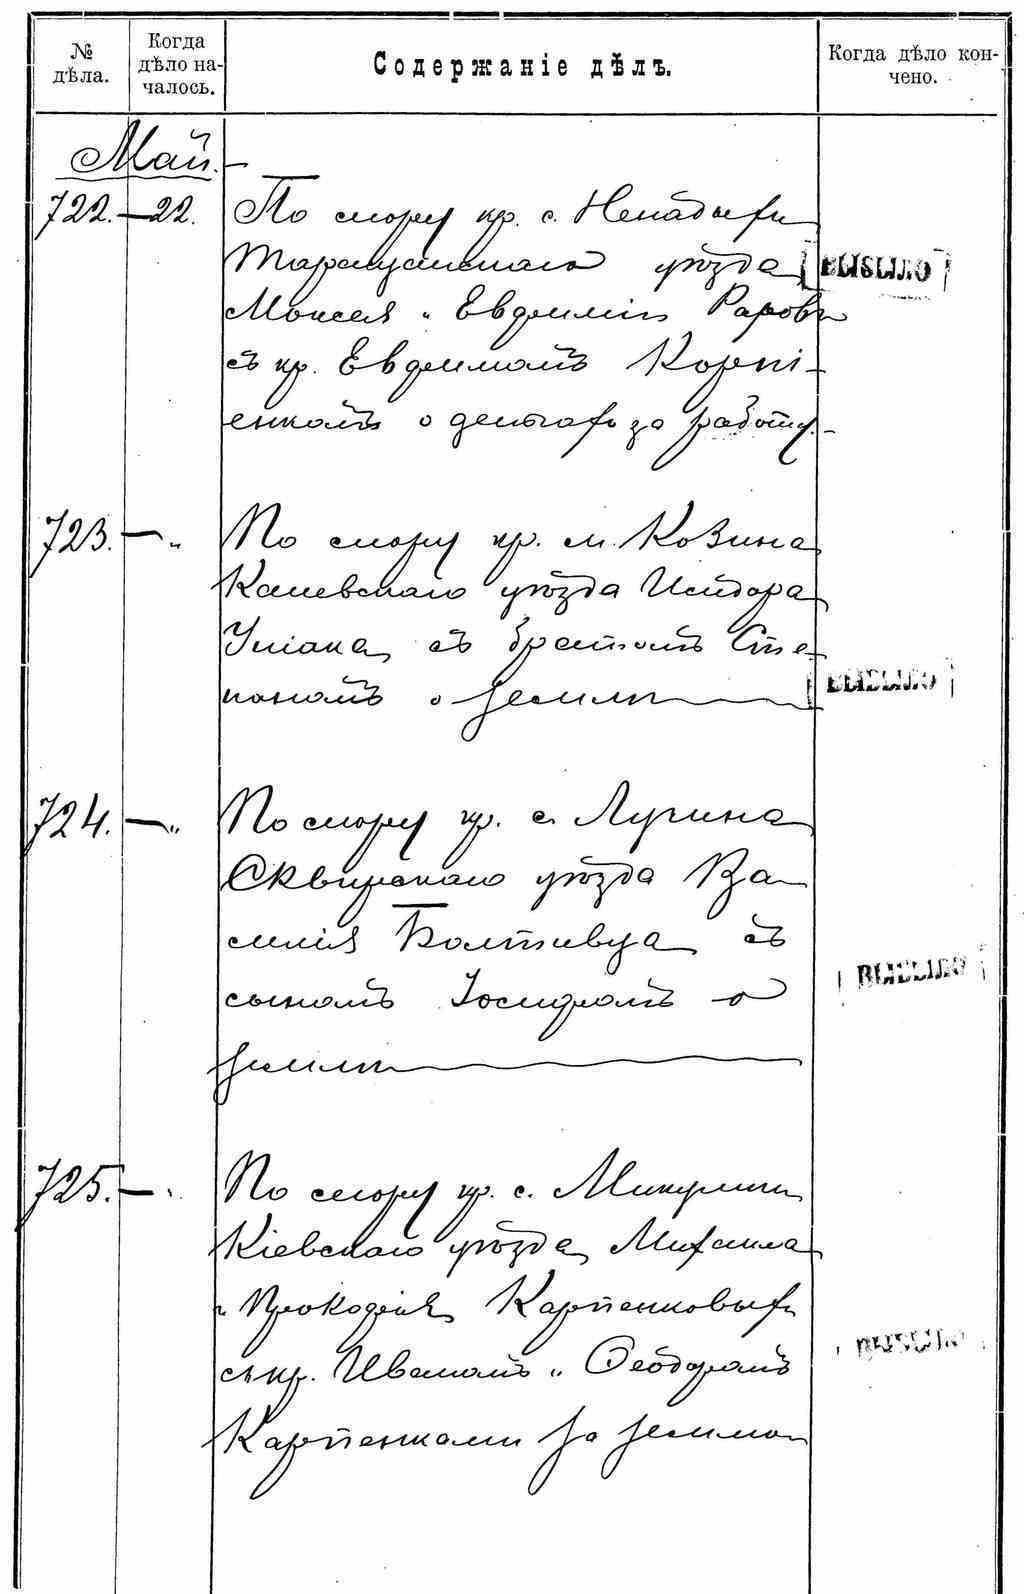 № дѣла.
Когда дѣло началось.
Содержаніе дѣлъ.
Когда дѣло кончено.
Май.
722. — 22. По спору кр. с. Ненадыхи
Таращанскаго уѣзда
ВЫБЫЛО
Моисея и Евдокіи
съ кр. Евдокимомъ Корні-
енкомъ о деньгахъ за работу. —
723. — " По спору кр. м. Козина
Каневскаго уѣзда Исидора
Уліана съ братомъ Сте-
паномъ о землѣ
ВЫБЫЛО
724. — " По спору кр. с. Лучина
Сквирскаго уѣзда Ва-
силія Болтивца съ
ВЫБЫЛО
сыномъ Іосифомъ о
землѣ
725. — " По спору кр. с. Микулич
Кіевскаго уѣзда Михаила
и Прокофія Карпенковыхъ
ВЫБЫЛО
съ кр. Иваномъ и Ѳеодоромъ
Карпенками за землю